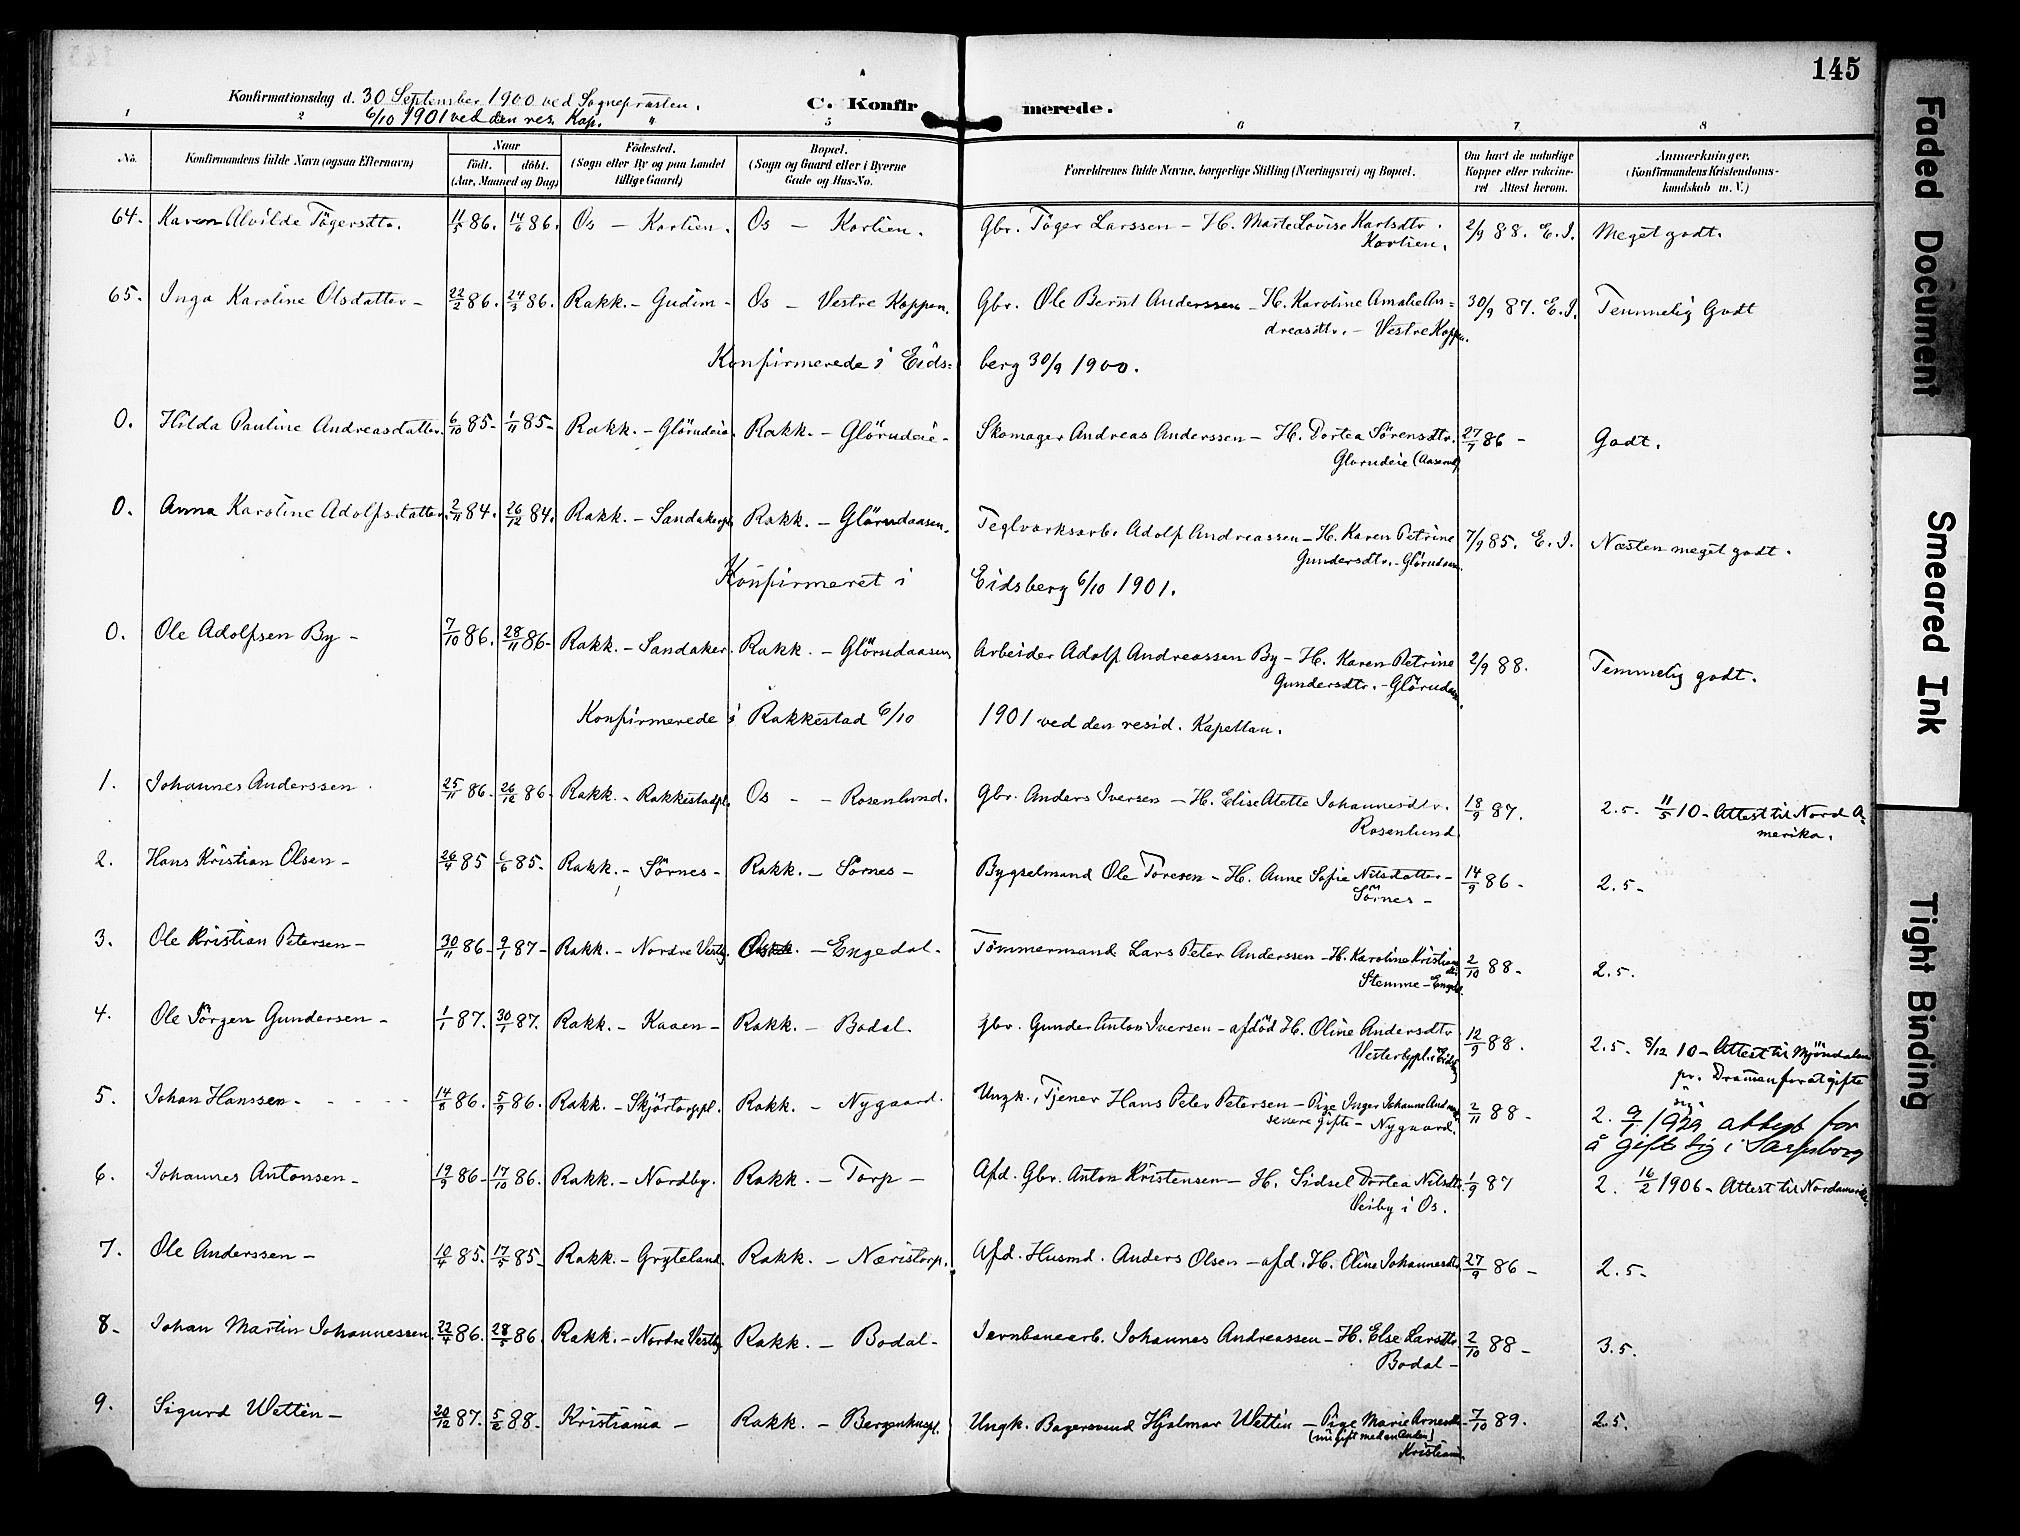 145
Konfirmationsdag d. 30 September 1900 ved Sognepræsten.
6/10 1901 ved den res. Kap.
C. Konfirmerede.
1 2 4 5 6 7 8
No. Konfirmandens fulde Navn (ogsaa Efternavn) Naar født. døbt. (Aar, Maaned og Dag) Fødested. (Sogn eller By og paa Landet tillige Gaard) Bopæl. (Sogn og Gaard eller i Byerne Gade og Hus-No. Forældrenes fulde Navne, borgerlige Stilling (Næringsvei) og Bopæl. Om havt de naturlige Kopper eller vaccineret Attest herom. Anmærkninger. (Konfirmandens Kristendomskundskab m. V.)
64. Karen Alvilde Tögersdtr. 11/5 86. 14/6 86. Os - Kortien. Os - Kortien. Gbr. Töger Larssen - H. Marte Lovise Karlsdtr. 2/9 88. E. I. Meget godt.
Kortien.
65. Inga Karoline Olsdatter - 22/2 86. 24/3 86. Rakk. - Gudim - Os - Vestre Koppen. Gbr. Ole Bernt Anderssen - H. Karoline Amalie An= 30/9 87. E. I. Temmelig Godt
dreasdtr. - Vestre Koppen.
Konfirmerede i Eids= berg 30/9 1900.
0. Hilda Pauline Andreasdatter. 6/10 85- 1/11 85- Rakk. - Glörudeie. Rakk. - Glörudeie - Skomager Andreas Anderssen - H. Dortea Sörensdtr. 27/9 86 - Godt.
Glorudeie (Aaserud)
0. Anna Karoline Adolfsdatter. 2/11 84. 26/12 84. Rakk. - Sandakerpl. Rakk. - Glörudaasen. Teglværksarb. Adolf Andreassen - H. Karen Petrine 7/9 85. E. I. Næsten meget godt.
Gundersdtr. - Glörudaasen
Konfirmeret i Eidsberg 6/10 1901.
0. Ole Adolfsen By - 7/10 86. 28/11 86- Rakk. - Sandaker. Rakk. - Glörudaasen Arbeider Adolf Andreassen By - H. Karen Petrine 2/9 88. Temmelig godt.
Gundersdtr. - Glörudaasen.
Konfirmerede i Rakkestad 6/10 1901 ved den resid. Kapellan.
1. Johannes Anderssen. 25/11 86. 26/12 86- Rakk. - Rakkestadpl. Os - - Rosenlund. Gbr. Anders Iversen - H. Elise Atette Johannesdtr. 18/9 87. 2.5. 11/5 10 - Attest til Nord A=
Rosenlund merika.
2. Hans Kristian Olsen - 26/4 85 6/6 85- Rakk. - Sörnes - Rakk. - Sörnes - Bygselmand Ole Toresen - H. Anne Sofie Nilsdatter - 14/9 86 - 2.5-
Sörnes -
3. Ole Kristian Petersen - 30/11 86- 9/1 87- Rakk. - Nordre Vestby. - Engedal. Tömmermand Lars Peter Anderssen - H. Karoline Kristians 2/10 88 - 2.5.
dtr. Stemme - Engedal.
4. Ole Jörgen Gundersen - 1/1 87. 30/1 87. Rakk. - Kaaen - Rakk. - Bodal. Gbr. Gunder Anton Iversen - afdöd H. Oline Andersdtr 12/9 88. 2.5. 8/12 10 - Attest til Mjöndalen
Vesterbypl. i Eidsberg pr. Dramen for at gifte
sig.
5. Johan Hanssen. - - - - 14/8 86. 5/9 86. Rakk. - Skjörtorppl. Rakk. - Nygaard. Ungk., Tjener Hans Peter Petersen - Pige Inger Johanne Andreas 2/11 88 - 2. 9/1 1929 attest for
senere gifte - Nygaard. å gifte sig i Sarpsborg
6. Johannes Antonsen - 19/9 86- 17/10 86. Rakk. - Nordby. Rakk. - Torp - Afd. Gbr. Anton Kristensen - H. Sidsel Dortea Nilsdtr. 1/9 87 2. 16/2 1906 - Attest til Nordamerika.
Veiby i Os.
7. Ole Anderssen - 10/4 85. 17/5 85- Rakk. - Gryteland. Rakk. - Næristorp. Afd. Husmd. Anders Olsen - afd. H. Eline Johannesdtr. 27/9 86 - 2.5-
8- Johan Martin Johannessen. 22/4 86. 28/5 86. Rakk. - Nordre Vestby Rakk. - Bodal - Jernbanearb. Johannes Andreassen - H. Else Larsdtr. 2/10 88 - 3.5.
Bodal -
9. Sigurd Wettin - 20/12 87. 5/2 88- Kristiania - Rakk. - Bergenhuspl. Ungk. Bagersvend Hjalmar Wettin - Pige Marie Arnesdtr. 7/10 89. 2.5.
(nu gift med en Anden)
Kristiania
Faded Document
Smeared Ink
Tight Binding